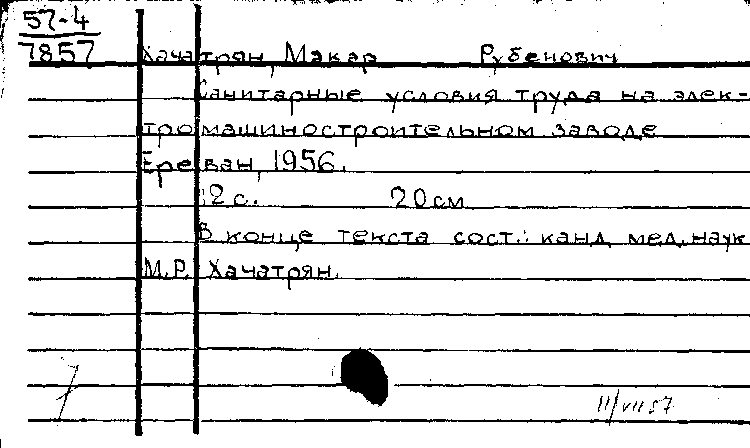 57-4
7857
Хачатрян, Макар Рубенович
Санитарные условия труда на элек-
тромашиностроительном заводе
Ереван, 1956.
12 с. 20 см
В конце текста сост.: канд. мед. наук
М.Р. Хачатрян.
III/VII 57